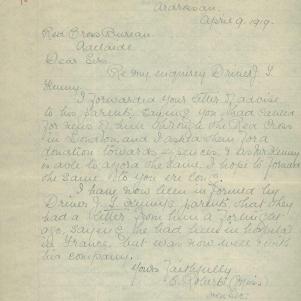 Ardrossan.
April 9. 1919.
Red Cross Bureau
Adelaide
Dear Sirs
Re my inquirey Driver J. L.
Kenny.
I forwarded your letter of advise
to his parents, saying you had cabled
for news of him through the Red Cross
in London and I asked them for a
donation towards
able to afford the same. I hope to forward
the same to you
I have now been informed by
Driver J. L. Kenny's parents that they
had a letter from him a fortnight
ago, saying he had been in hospital
in France, but was now well & with
his company.
Yours Faithfully
E. Roberts (Miss)